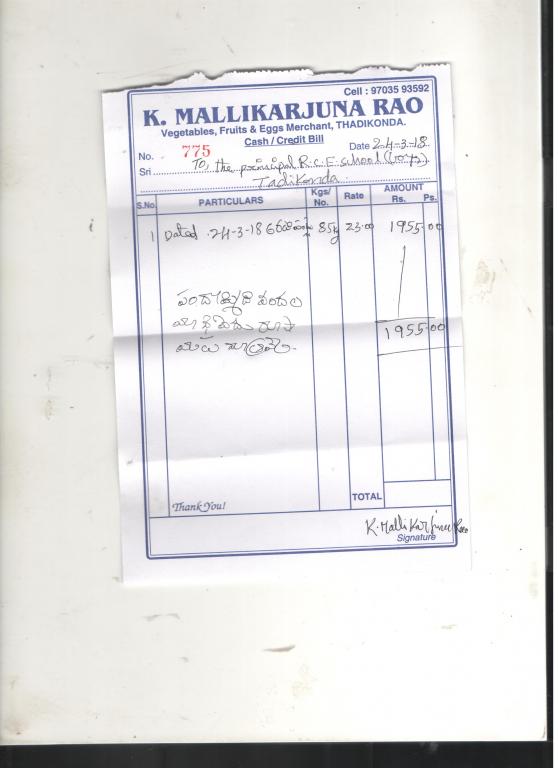 Cell : 97035 93592
K. MALLIKARJUNA RAO
Vegetables, Fruits & Eggs Merchant, THADIKONDA.
Cash / Credit Bill
No. 775 Date 24-3-18
Sri To, the principal R.C.E. school (boys)
Tadikonda
S.No. PARTICULARS Kgs/ No. Rate AMOUNT Rs. Ps.
1 Dated 24-3-18 85kg 23.00 1955.00
పందొమ్మిది వందల
1955.00
మాత్రమే.
TOTAL
Thank You!
K. Mallikarjuna Rao
Signature